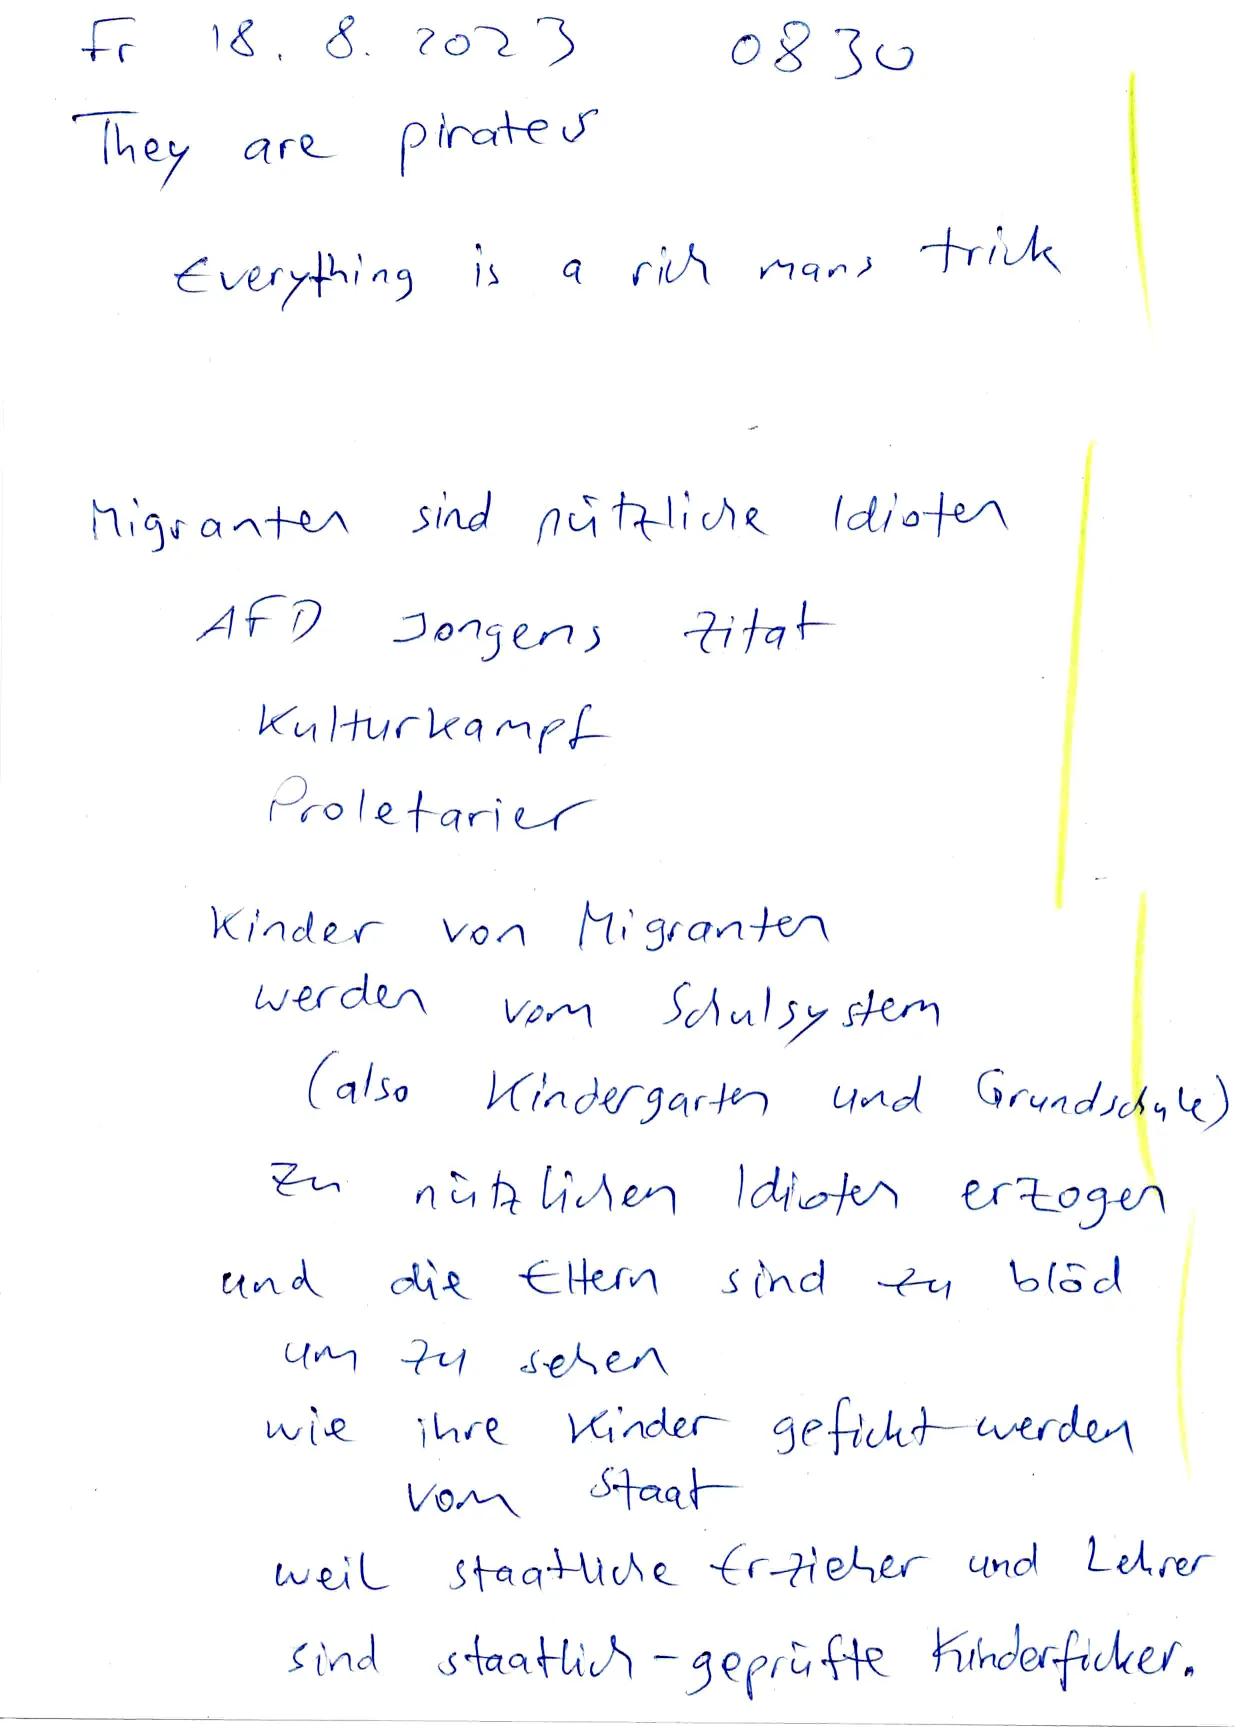 Fr 18. 8. 2023 0830
They are pirates
Everything is a rich mans trick
Migranten sind nützliche Idioten
AFD Jongens Zitat
Kulturkampf
Proletarier
Kinder von Migranten
werden vom Schulsystem
(also Kindergarten und Grundschule)
zu nützlichen Idioten erzogen
und die Eltern sind zu blöd
um zu sehen
wie ihre Kinder gefickt werden
vom Staat
weil staatliche Erzieher und Lehrer
sind staatlich-geprüfte Kinderficker.